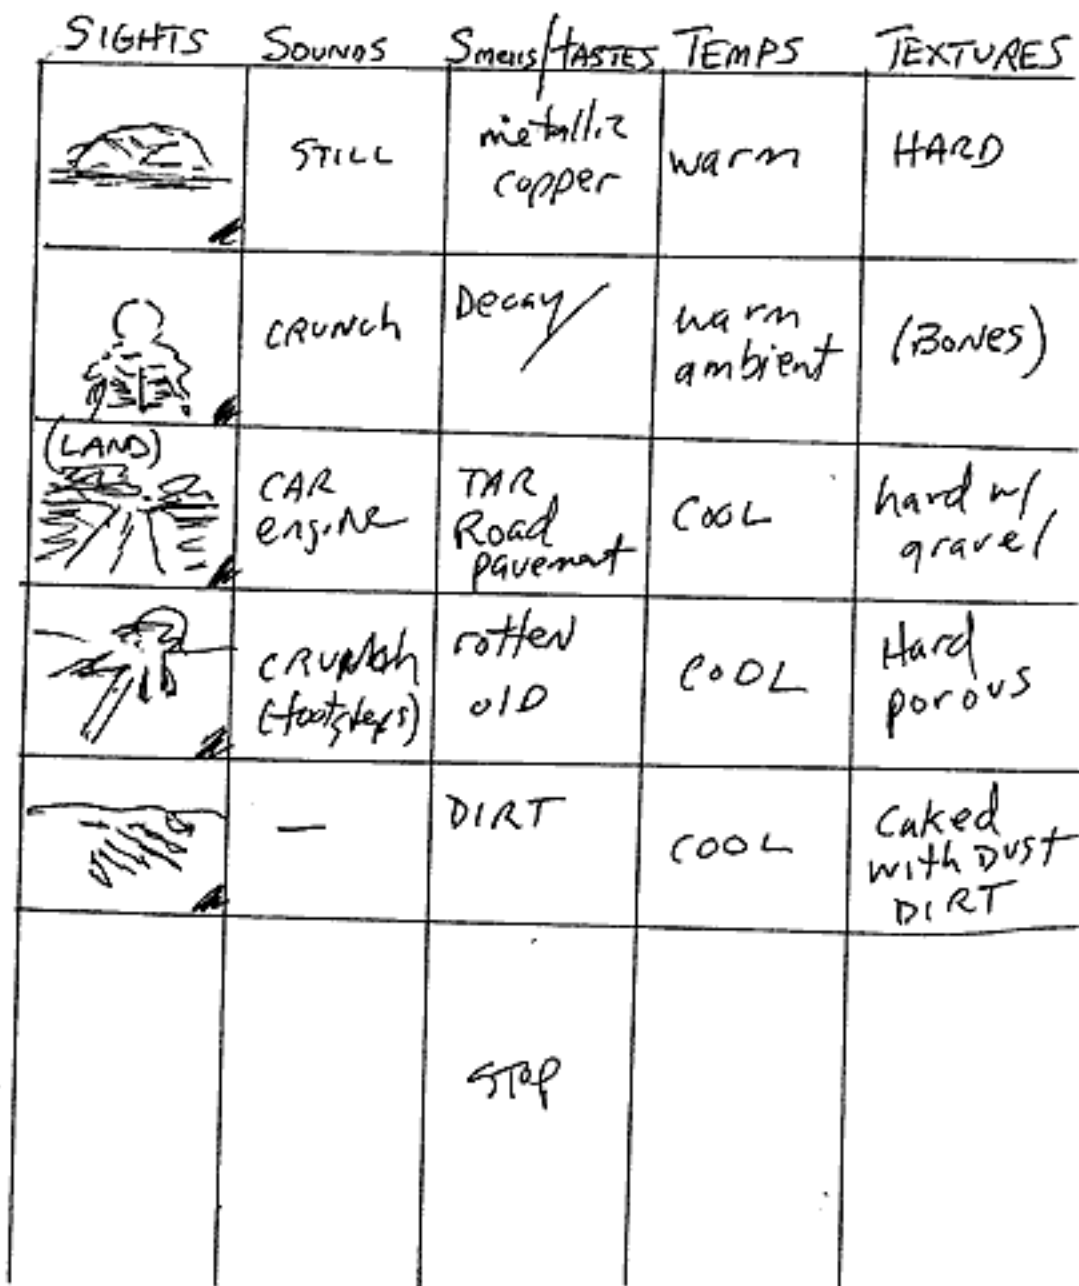 SIGHTS SOUNDS Smells/TASTES TEMPS TEXTURES
STILL
metallic
copper
warm
HARD
CRUNCH
Decay/
warm
ambient
(BONES)
(LAND)
CAR
engine
TAR
Road
pavement
COOL
hard w/
gravel
CRUNCH
(footsteps)
rotten
OLD
COOL
Hard
porous
—
DIRT
COOL
Caked
with DUST
DIRT
STOP